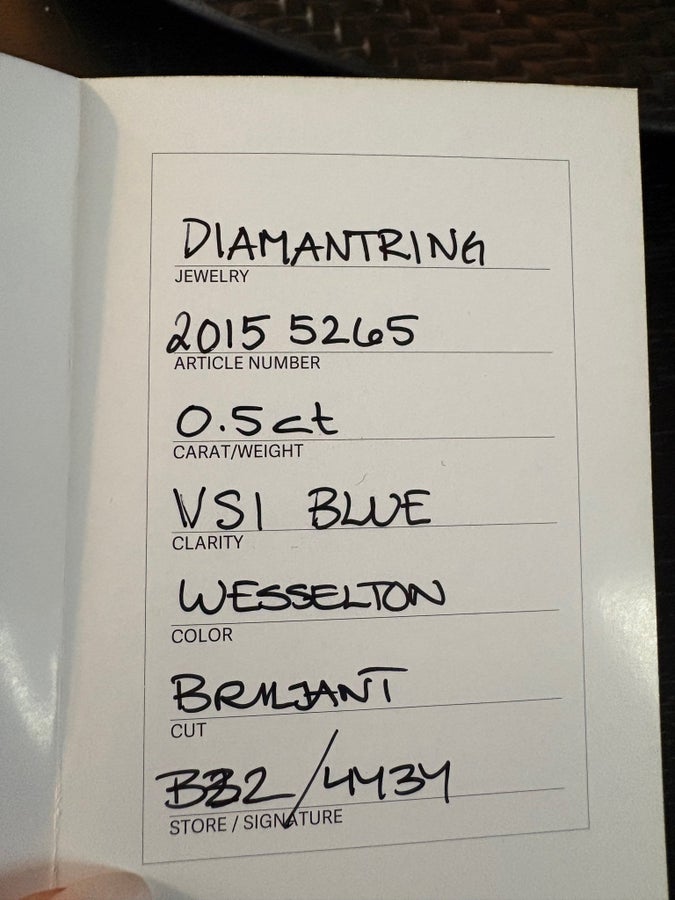 DIAMANTRING
JEWELRY
2015 5265
ARTICLE NUMBER
0.5ct
CARAT/WEIGHT
VS1 BLUE
CLARITY
WESSELTON
COLOR
BRILJANT
CUT
/4434
STORE / SIGNATURE